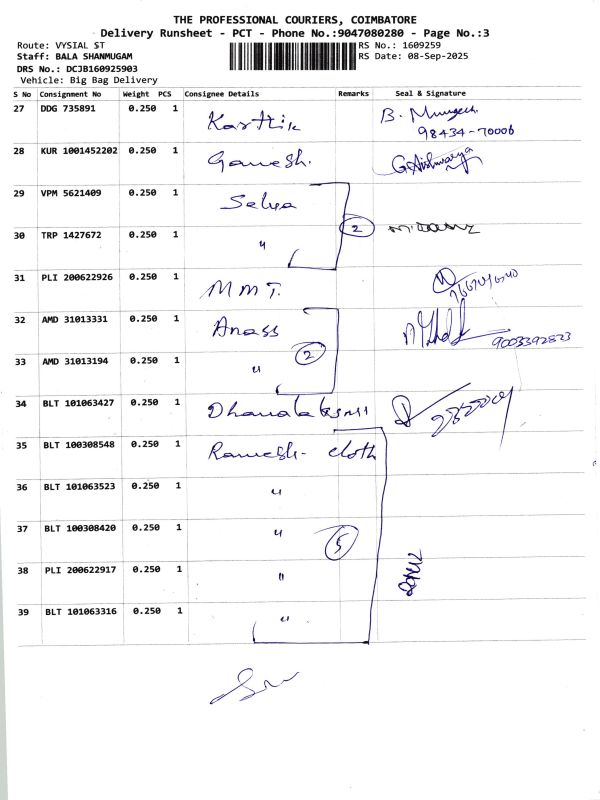 THE PROFESSIONAL COURIERS, COIMBATORE
Delivery Runsheet - PCT - Phone No.:9047080280 - Page No.:3
Route: VYSIAL ST RS No.: 1609259
Staff: BALA SHANMUGAM RS Date: 08-Sep-2025
DRS No.: DCJB160925903
Vehicle: Big Bag Delivery
S No Consignment No Weight PCS Consignee Details Remarks Seal & Signature
27 DDG 735891 0.250 1 Karthik B. Murugesh
98434-70006
28 KUR 1001452202 0.250 1 Ganesh. G. Aishwarya
29 VPM 5621409 0.250 1 Selva
2
30 TRP 1427672 0.250 1 "
31 PLI 200622926 0.250 1 MMT.
32 AMD 31013331 0.250 1 Anass
9003392823
2
33 AMD 31013194 0.250 1 "
34 BLT 101063427 0.250 1 Dhanalaksmi
35 BLT 100308548 0.250 1 Ramesh- cloth
36 BLT 101063523 0.250 1 "
37 BLT 100308420 0.250 1 " 5
38 PLI 200622917 0.250 1 "
39 BLT 101063316 0.250 1 "